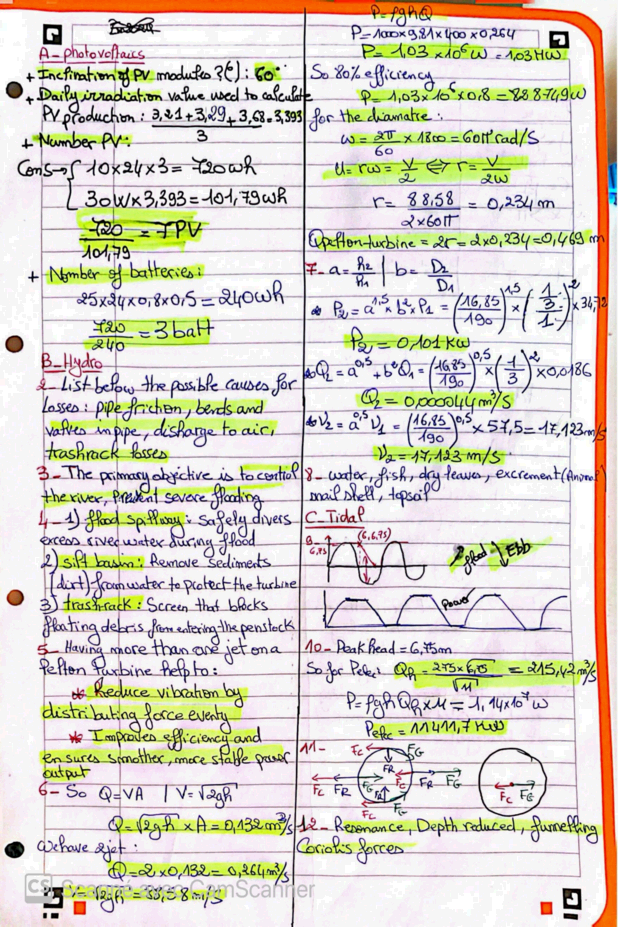 A_ photovoltaics
+ Inclination of PV modules ?(°): 60°
+ Daily irradiation value used to calculate
PV production: (3,21+3,29+3,68)/3 = 3,393
+ Number PV:
Cons→{ 10×24×3 = 720wh
30W×3,393=101,79wh
720/101,79 = 7PV
+ Number of batteries:
25×24×0,8×0,5=240wh
720/240 = 3 batt
B_Hydro
2_ List below the possible causes for
Losses: pipe friction, bends and
valves in pipe, disharge to air,
trashrack losses
3_ The primary objective is to control
the river, prevent severe flooding
4_ 1) flood spillway: Safely divers
excess river water during flood
2) silt basin: Remove Sediments
(dirt) from water to protect the turbine
3) trashrack: Screen that blocks
floating debris from entering the penstock
5_ Having more than one jet on a
Pelton Turbine help to:
* Reduce vibration by
distributing force evenly
* Improves efficiency and
ensures smother, more stable power
output
6_ So Q=VA | V=√2gh
Q=√2gh × A = 0,132 m³/s
We have 2jet:
Q=2×0,132 = 0,264 m³/s
V=√2gh = 88,58 m/s
P=ρghQ
P=1000×9,81×400×0,264
P= 1,03×10⁶ W = 1,03 MW
So 80% efficiency
P= 1,03×10⁶×0,8=828749W
for the diamatre:
w= 2π/60 × 1800 = 60π rad/S
U= rw= V/2 ⟺ r= V/2w
r= 88,58/(2×60π) = 0,234 m
Qpelton-turbine = 2r = 2×0,234=0,469 m
7_ a= h2/h1 | b= D2/D1
P2= a^1,5 × b² × P1 = (16,85/190)^1,5 × (1/3/1)² × 34,72
P2= 0,101 KW
Q2= a^0,5 + b²Q1 = (16,85/190)^0,5 × (1/3)² × 0,0186
V2= a^0,5 V1 = (16,85/190)^0,5 × 57,5=17,123m/s
V2= 17,123 m/s
8_ water, fish, dry leaves, excrement (Animal)
snail shell, topsoil
C_Tidal
8
6,75
(6,6,75)
flood ↓ Ebb
Power
10_ Peak head = 6,75m
= 215,42 m³/s
P=ρghQR×M = 1,14×10⁷ W
= 11411,7 KW
11_
FC FG
FR
FC FR FG FC FR FG
FR FG
FC
FC FG
12_ Resonance, Depth reduced, funnelling
Coriolis forces
CS Scanné avec CamScanner